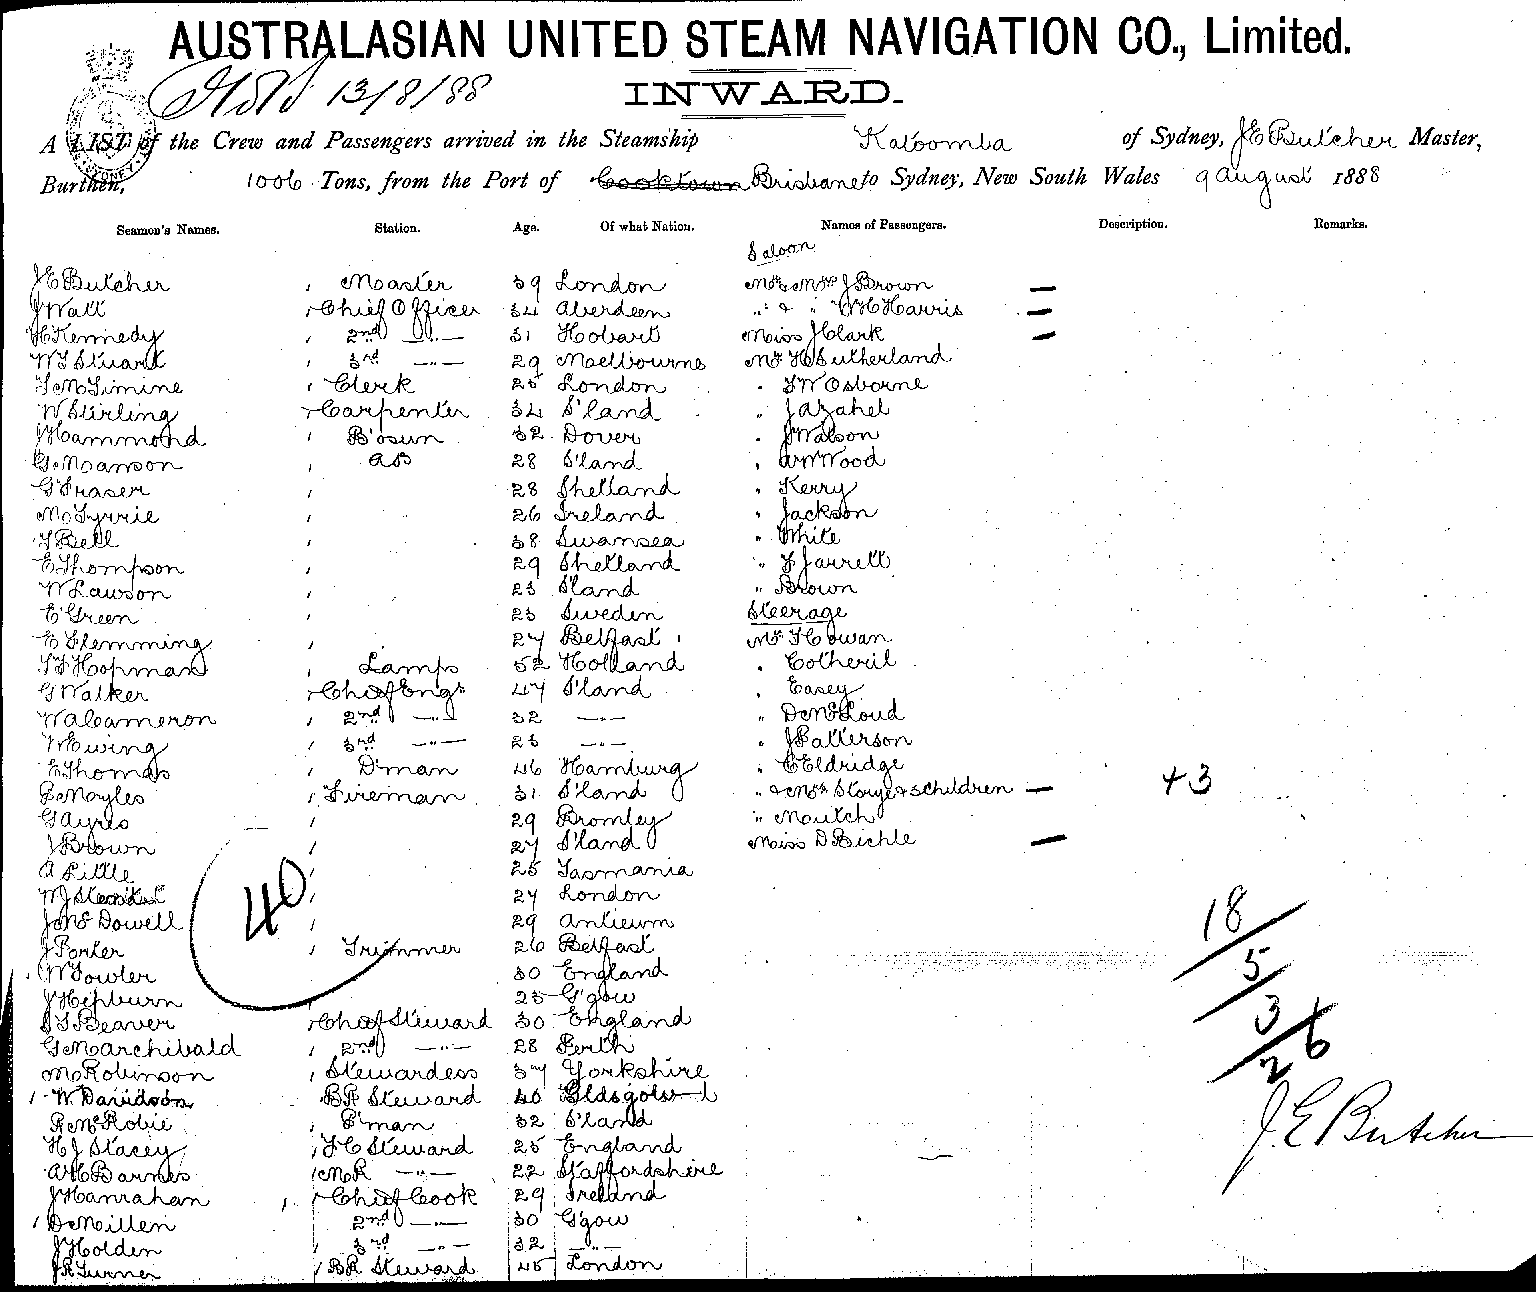 AUSTRALASIAN UNITED STEAM NAVIGATION CO., Limited.
13/8/88
INWARD.
A LIST of the Crew and Passengers arrived in the Steamship Katoomba of Sydney, J E Butcher Master,
Burthen, 1006 Tons, from the Port of Cooktown Brisbane to Sydney, New South Wales 9 August 1888
Seamen's Names. Station. Age. Of what Nation. Names of Passengers. Description. Remarks.
Saloon
J E Butcher Master 39 London Mr & Mrs J Brown —
J Watt Chief Officer 34 Aberdeen " & " W H Harris —
H Kennedy 2nd —"— 31 Hobart Miss J Clark —
W S Stuart 3rd —"— 29 Melbourne Mr H Sutherland
Clerk 25 London " F W Osborne
W Stirling Carpenter 34 S'land "
J Hammond B'osun 32 Dover " J Watson
G Manson AB 28 S'land " Wood
G Fraser 28 Shetland " Kerry
26 Ireland " Jackson
T Bell 38 Swansea " White
E Thompson 29 Shetland " F Jarrett
W Lawson 23 S'land " Brown
E Green 23 Sweden Steerage
E Flemming 27 Belfast Mr T Cowan
Hopman Lamps 52 Holland " Cotheril
G Walker Chief Engr 47 S'land " Easey
W A Cameron 2nd —"— 32 —"— " D McLoud
W Ewing 3rd —"— 23 —"— " J Patterson
E Thomas D'man 46 Hamburg " C Eldridge
P Moyles Fireman 31 S'land " & Mrs Storye & 3 children — +3
G Ayres 29 Bromley " Moutch
J Brown 27 S'land Miss D Bichle —
A Little 25 Tasmania
W J 27 London
40
J McDowell 29 Antieum
J Porter Trimmer 26 Belfast
W Fowler 30 England
J Hepburn 25 G'gow
Beaver Chief Steward 30 England
G M Archibald 2nd —"— 28 Perth
M Robinson Stewardess 37 Yorkshire
W. Davidson BR Steward 40 Glasgow
R McRobie P'man 32 S'land
H J Stacey F C Steward 25 England
A H Barnes M R —"— 22 Staffordshire
J Hanrahan Chief Cook 29 Ireland
D McMillen 2nd —"— 30 G'gow
J Holden 3rd —"— 32 —"—
J R Turner BR Steward 45 London
18
5
3
26
J E Butcher